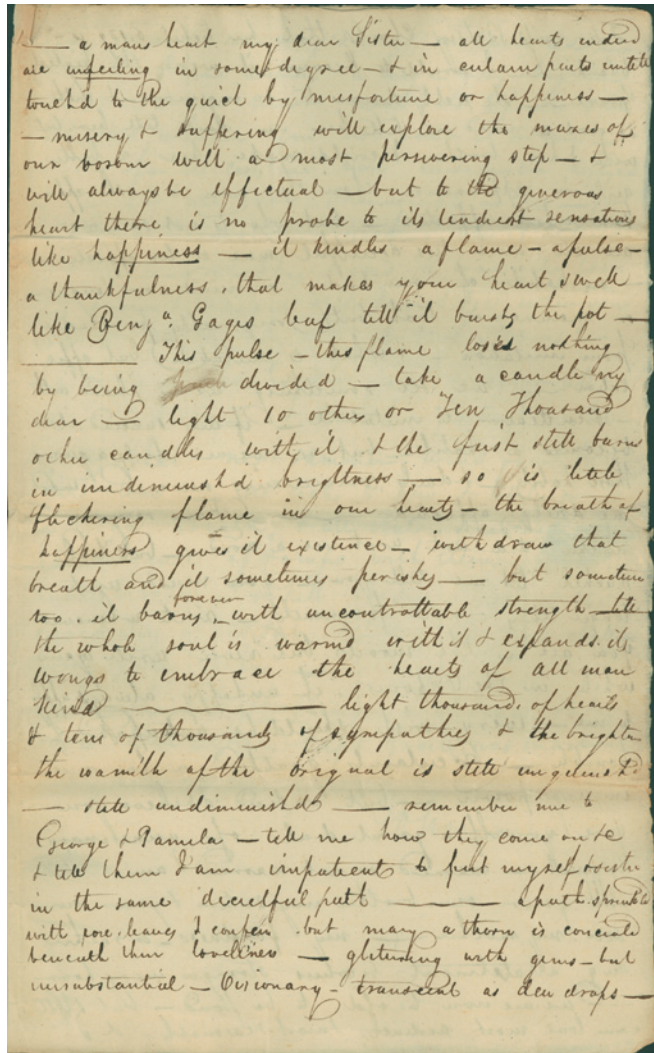 — a mans heart my dear Sister — all hearts indeed
are unfeeling in some degree — & in certain parts untill
touch'd to the quick by misfortune or happiness —
— misery & suffering will explore the mazes of
our bosom with a most persevering step — &
will always be effectual — but to the generous
heart there is no probe to its tenderest sensations
like happiness — it kindles a flame — a pulse —
a thankfulness, that makes your heart swell
like Benj.a Gages loaf till it bursts the pot —
This pulse — this flame loses nothing
by being divided — take a candle my
dear — light 10 others or Ten Thousand
other candles with it & the first still burns
in undiminish'd brightness — so is little
flickering flame in our hearts — the breath of
happiness gives it existence — withdraw that
breath and it sometimes perishes — but sometimes
too it burns forever with uncontrollable strength — till
the whole soul is warm'd with it & expands its
wings to embrace the hearts of all man
kind — light thousands of hearts
& tens of thousands of sympathies & the brighter
the warmth of the original is still
— still undiminish'd — remember me to
George & Pamela — tell me how they come on &c
& tell them I am impatient to put myself
in the same path — a path sprinkled
with rose leaves & but many a thorn is conceald
beneath their loveliness — glittering with gems — but
unsubstantial — Visionary — transcent as dew drops —